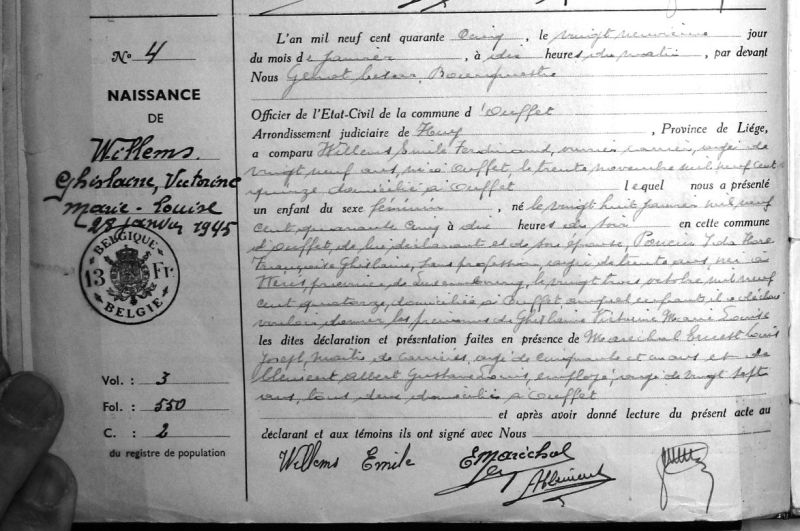 No 4
NAISSANCE
DE
Willems.
Ghislaine, Victorine
Marie-Louise
28 janvier 1945
BELGIQUE
13 Fr.
BELGIE
Vol. : 3
Fol. : 550
C. : 2
du registre de population
L'an mil neuf cent quarante Cinq, le vingt neuvième jour
du mois de janvier, à dix heures du matin, par devant
Nous Bourgmestre
Officier de l'Etat-Civil de la commune d'Ouffet
Arrondissement judiciaire de Huy, Province de Liége,
a comparu Willems, Emile Ferdinand, ouvrier carrier, âgé de
vingt neuf ans, né à Ouffet, le trente novembre mil neuf cent
quinze, domicilié à Ouffet lequel nous a présenté
un enfant du sexe féminin, né le vingt huit janvier mil neuf
cent quarante cinq à dix heures du soir en cette commune
d'Ouffet, de lui déclarant et de son épouse, Ida
Françoise Ghislaine, sans profession, âgée de trente ans, née à
Wéris province de Luxembourg, le vingt trois octobre mil neuf
cent quatorze, domiciliée à Ouffet auquel enfant il a déclaré
vouloir donner les prénoms de Ghislaine Victorine Marie Louise
les dites déclaration et présentation faites en présence de Maréchal Ernest Louis
Joseph, Maître de carrières, âgé de cinquante et un ans et de
Albert Gustave Louis, employé, âgé de vingt sept
ans, tous deux domiciliés à Ouffet
et après avoir donné lecture du présent acte au
déclarant et aux témoins ils ont signé avec Nous
Willems Emile EMaréchal